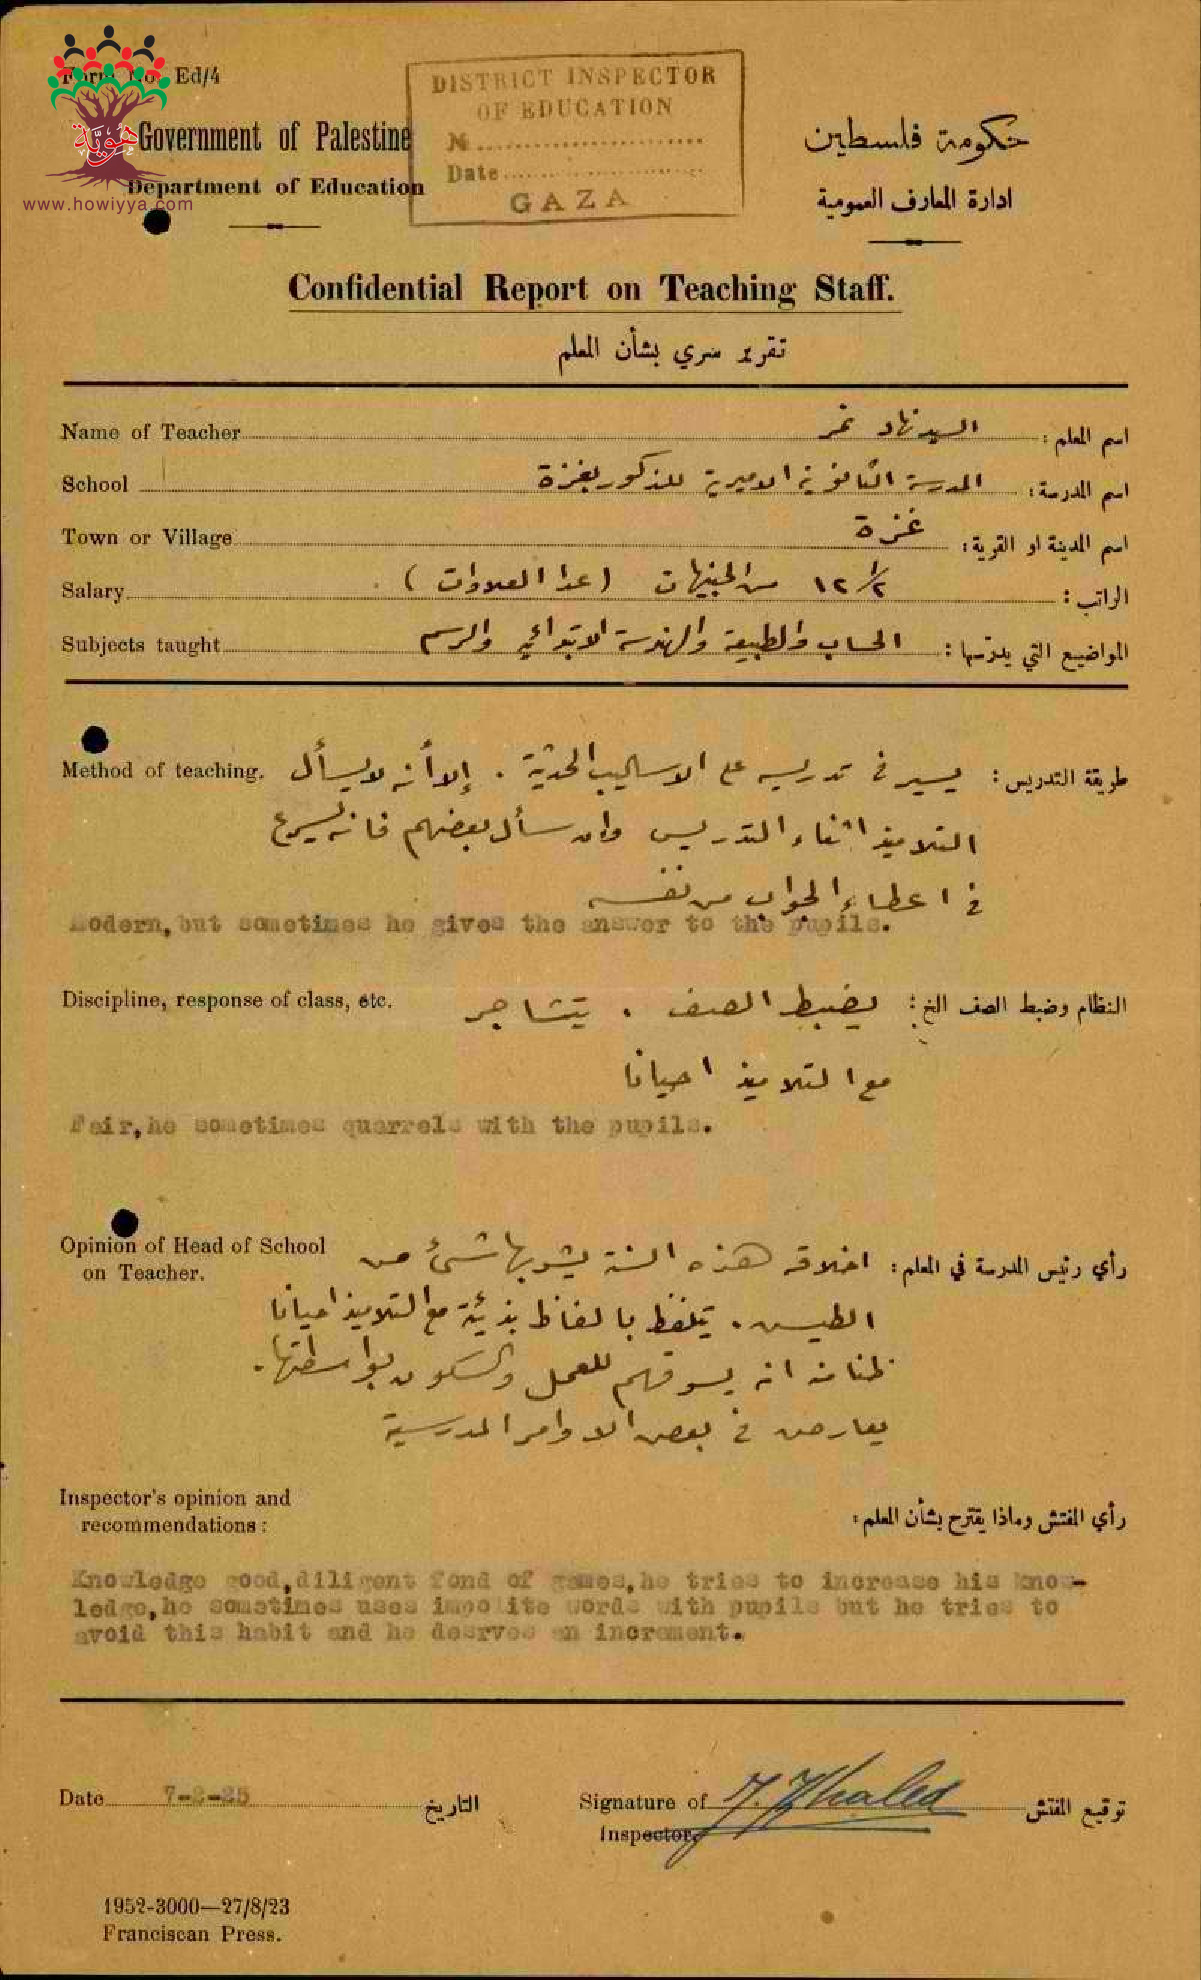 Form No. Ed/4
هُوِيَّة
www.howiyya.com
Government of Palestine
Department of Education
DISTRICT INSPECTOR
OF EDUCATION
№
Date
GAZA
حكومة فلسطين
ادارة المعارف العمومية
Confidential Report on Teaching Staff.
تقرير سري بشأن المعلم
Name of Teacher السيد نهاد نمر اسم المعلم :
School المدرسة الثانوية الاميرية للذكور بغزة اسم المدرسة :
Town or Village غزة اسم المدينة او القرية :
Salary ١٢ ١/٢ من الجنيهات (عدا العلاوات) الراتب :
Subjects taught الحساب والطبيعة والهندسة الابتدائي والرسم المواضيع التي يدرّسها :
Method of teaching. طريقة التدريس : يسير في تدريسه على الاساليب الحديثة . إلا أنه لا يسأل
التلاميذ اثناء التدريس وان سأل بعضهم فانه يسرع
في اعطاء الجواب من نفسه
Modern,but sometimes he gives the answer to the pupils.
Discipline, response of class, etc. النظام وضبط الصف الخ : يضبط الصف . يتشاجر
مع التلاميذ احيانا
Fair,he sometimes quarrels with the pupils.
Opinion of Head of School
on Teacher.
رأي رئيس المدرسة في المعلم : اخلاقه هذه السنة يشوبها شئ من
الطيش . يتلفظ بالفاظ بذيئة مع التلاميذ احيانا
ظنا منه انه يسوقهم للعمل والسكون بواسطتها .
يعارض في بعض الاوامر المدرسية
Inspector's opinion and
recommendations :
رأي المفتش وماذا يقترح بشأن المعلم :
Knowledge good,diligent fond of games,he tries to increase his know-
ledge,he sometimes uses impolite words with pupils but he tries to
avoid this habit and he desrves an increment.
Date 7-2-25 التاريخ
Signature of
Inspector. توقيع المفتش
1952-3000—27/8/23
Franciscan Press.